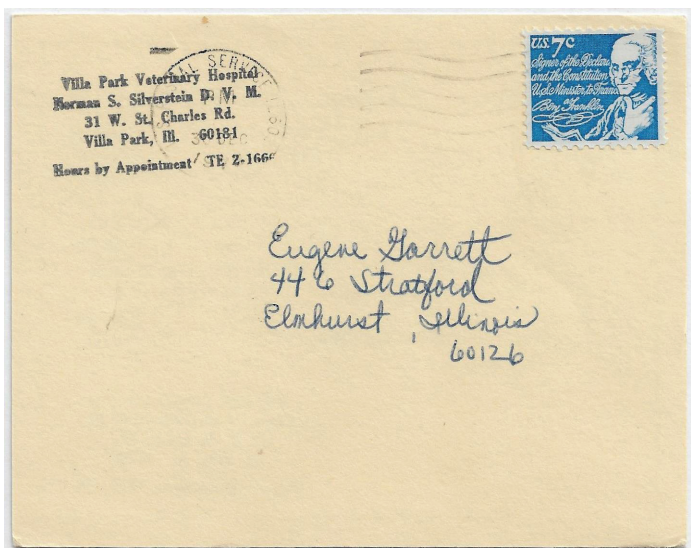 Villa Park Veterinary Hospital
Norman S. Silverstein D. V. M.
31 W. St. Charles Rd.
Villa Park, Ill. 60181
Hours by Appointment TE 2-1666
SERVICE
PM
DEC
U.S. 7c
Signer of the Declara
and the Constitution
U.S. Minister to France
Benj Franklin
Eugene Garrett
446 Stratford
Elmhurst, Illinois
60126